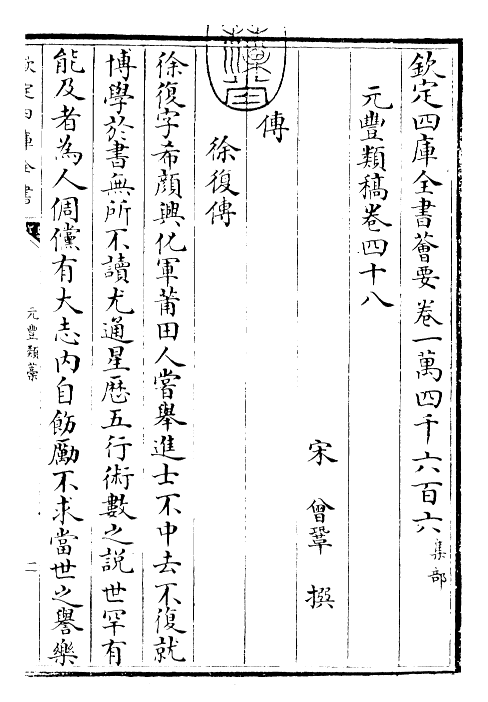 欽定四庫全書薈要卷一萬四千六百六 集部
元豐類稿卷四十八
宋 曾鞏 撰
傳
徐復傳
徐復字希顔興化軍莆田人嘗舉進士不中去不復就
博學於書無所不讀尤通星歷五行術數之説世罕有
能及者為人倜儻有大志内自飭勵不求當世之譽樂
欽定四庫全書
元豐類藁